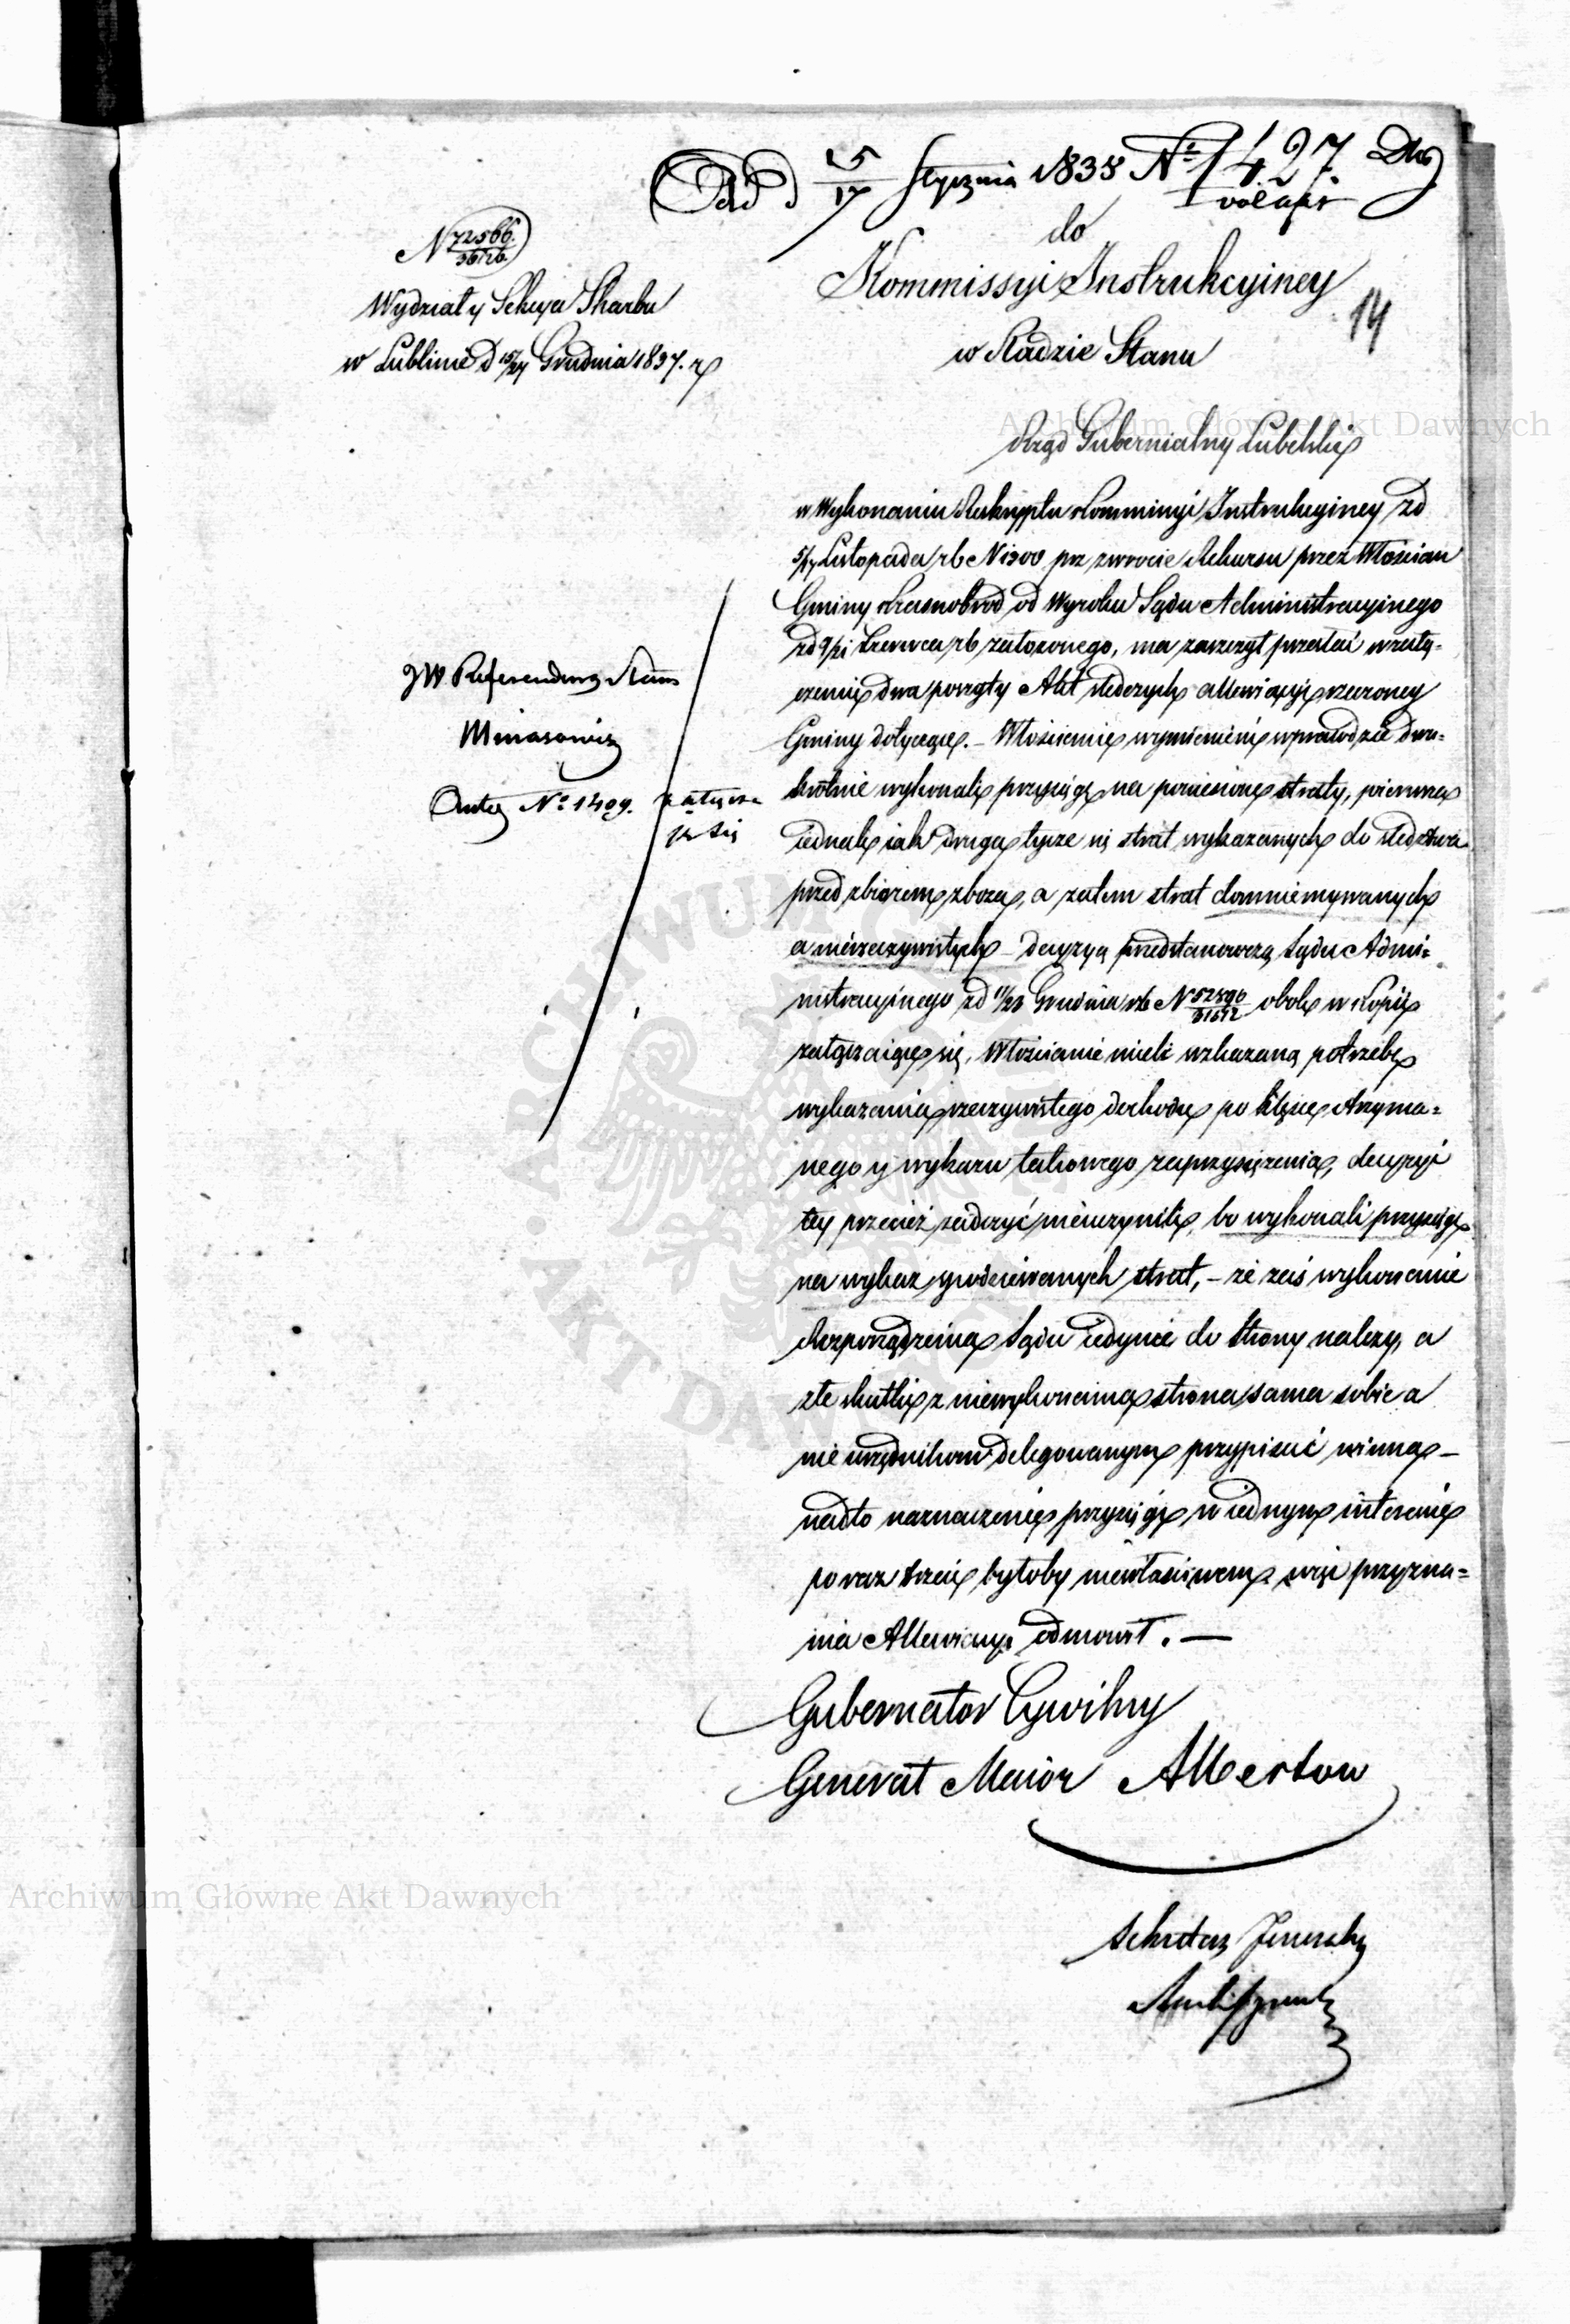 5/17 Stycznia 1838 Nº 1427.
do
Kommissyi Instrukcyiney
w Radzie Stanu
14
N 72566/
Wydziały Sekcya Skarbu
w Lublinie d 15/27 Grudnia 1837. r
Archiwum Główne Akt Dawnych
Rząd Gubernialny Lubelski
w Wykonaniu Reskryptu Kommissyi Instrukcyiney zd
5/17 Listopada rb N 1300 po zwrocie Rekursu przez Włościan
Gminy Krasnobrod od Wyroku Sądu Administracyinego
zd 9/21 Czerwca rb założonego, ma zaszczyt przesłać w załą-
czeniu dwa poszyty Akt śledczych allewiacyi rzeczoney
Gminy dotyczące. – Włościanie wymienieni wprawdzie dwu-
krotnie wykonali przysięgę na poniesione straty, pierwsza
iednak iak druga tycze się strat wykazanych do śledztwa
przed zbiorem zboża, a zatem strat domniemywanych
a nierzeczywistych – decyzyą przedstanowczą Sądu Admi-
nistracyinego zd 11/23 Grudnia rb N 52590/ obok w kopii
załączaiącą się, Włościanie mieli wskazaną potrzebę
wykazania rzeczywistego dochodu po klęsce otrzyma-
nego y wykazu takowego zaprzysiężenia, decyzyi
tey przecież zadosyć nieuczynili, bo wykonali przysięgę
na wykaz spodziewanych strat, – że zaś wykonanie
Rozporządzenia Sądu iedynie do strony należy, a
złe skutki z niewykonania strona sama sobie a
nie urzędnikom delegowanym przypisać winna –
nadto naznaczenie przysięgi w iednym interesie
po raz trzeci byłoby niewłaściwem więc przyzna-
nia Allewiacyi odmówił. —
JW Referendarz Stanu
Minasowicz
Antea Nº 1409. załącza
się
Gubernator Cywilny
Generał Maior Albertow
Archiwum Główne Akt Dawnych
Sekretarz Jeneralny
ARCHIWUM GŁÓWNE AKT DAWNYCH